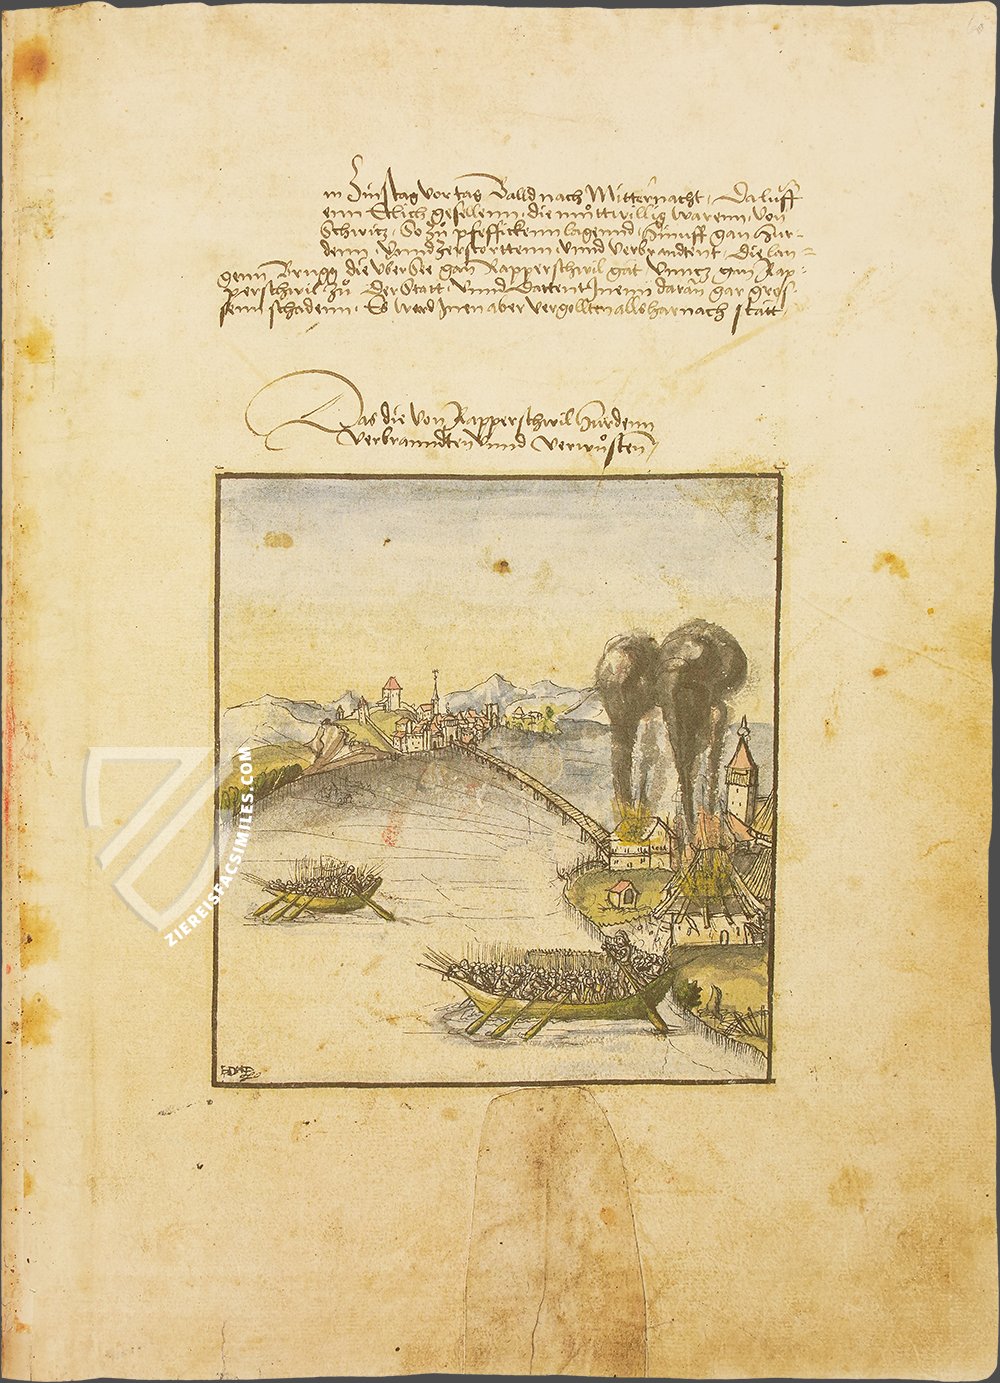 m Zinstag vor tag Balld nach Mitternacht, Da luff
enn Etlich gesellenn, die muttwillig warenn, von
Schwitz, So zů pfeffickenn lagennd, Hinuff gan Hur-
denn, Unnd zerstorttenn, unnd verbrandtent, die lan-
genn Brugg die uber See gan Rapperschwil gat Unntz gan Rap-
perschwil zů der Statt, Unnd Dattent Inenn daran gar gros-
senn schadenn, Es ward Inen aber vergollten alls harnach statt,
Das die von Rapperschwil Hurdenn
verbranndten unnd verwůsten,
ZIEREISFACSIMILES.COM